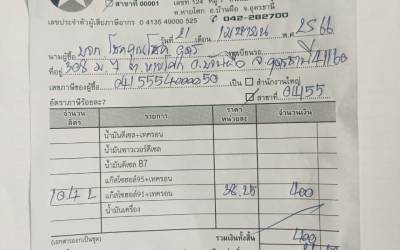 สาขาที่ 00001
เลขที่ 124 หมู่ 1
ต.หายโศก อ.บ้านผือ จ.อุดรธานี
เลขประจำตัวผู้เสียภาษีอากร 0 4135 49000 525
042-282700
วันที่ 21 เดือน เมษายน พ.ศ. 2566
นามผู้ซื้อ บจก. โชคคูณโชค อุดร
308 ม.7 ต.หายโศก อ.บ้านผือ จ.อุดรธานี 41160
เลขภาษีของผู้ซื้อ 0415554000050 เป็น สำนักงานใหญ่
สาขาที่ 04155
อัตราภาษีร้อยละ7
จำนวนลิตร รายการ ราคาหน่วยละ จำนวนเงิน
น้ำมันดีเซล+เทครอน
น้ำมันพาวเวอร์ดีเซล
น้ำมันดีเซล B7
แก๊สโซฮอล์95+เทครอน
10.4 L แก๊สโซฮอล์91+เทครอน 38.25 400
น้ำมันเครื่อง
(เอกสารออกเป็นชุด) รวมเงินทั้งสิ้น 400